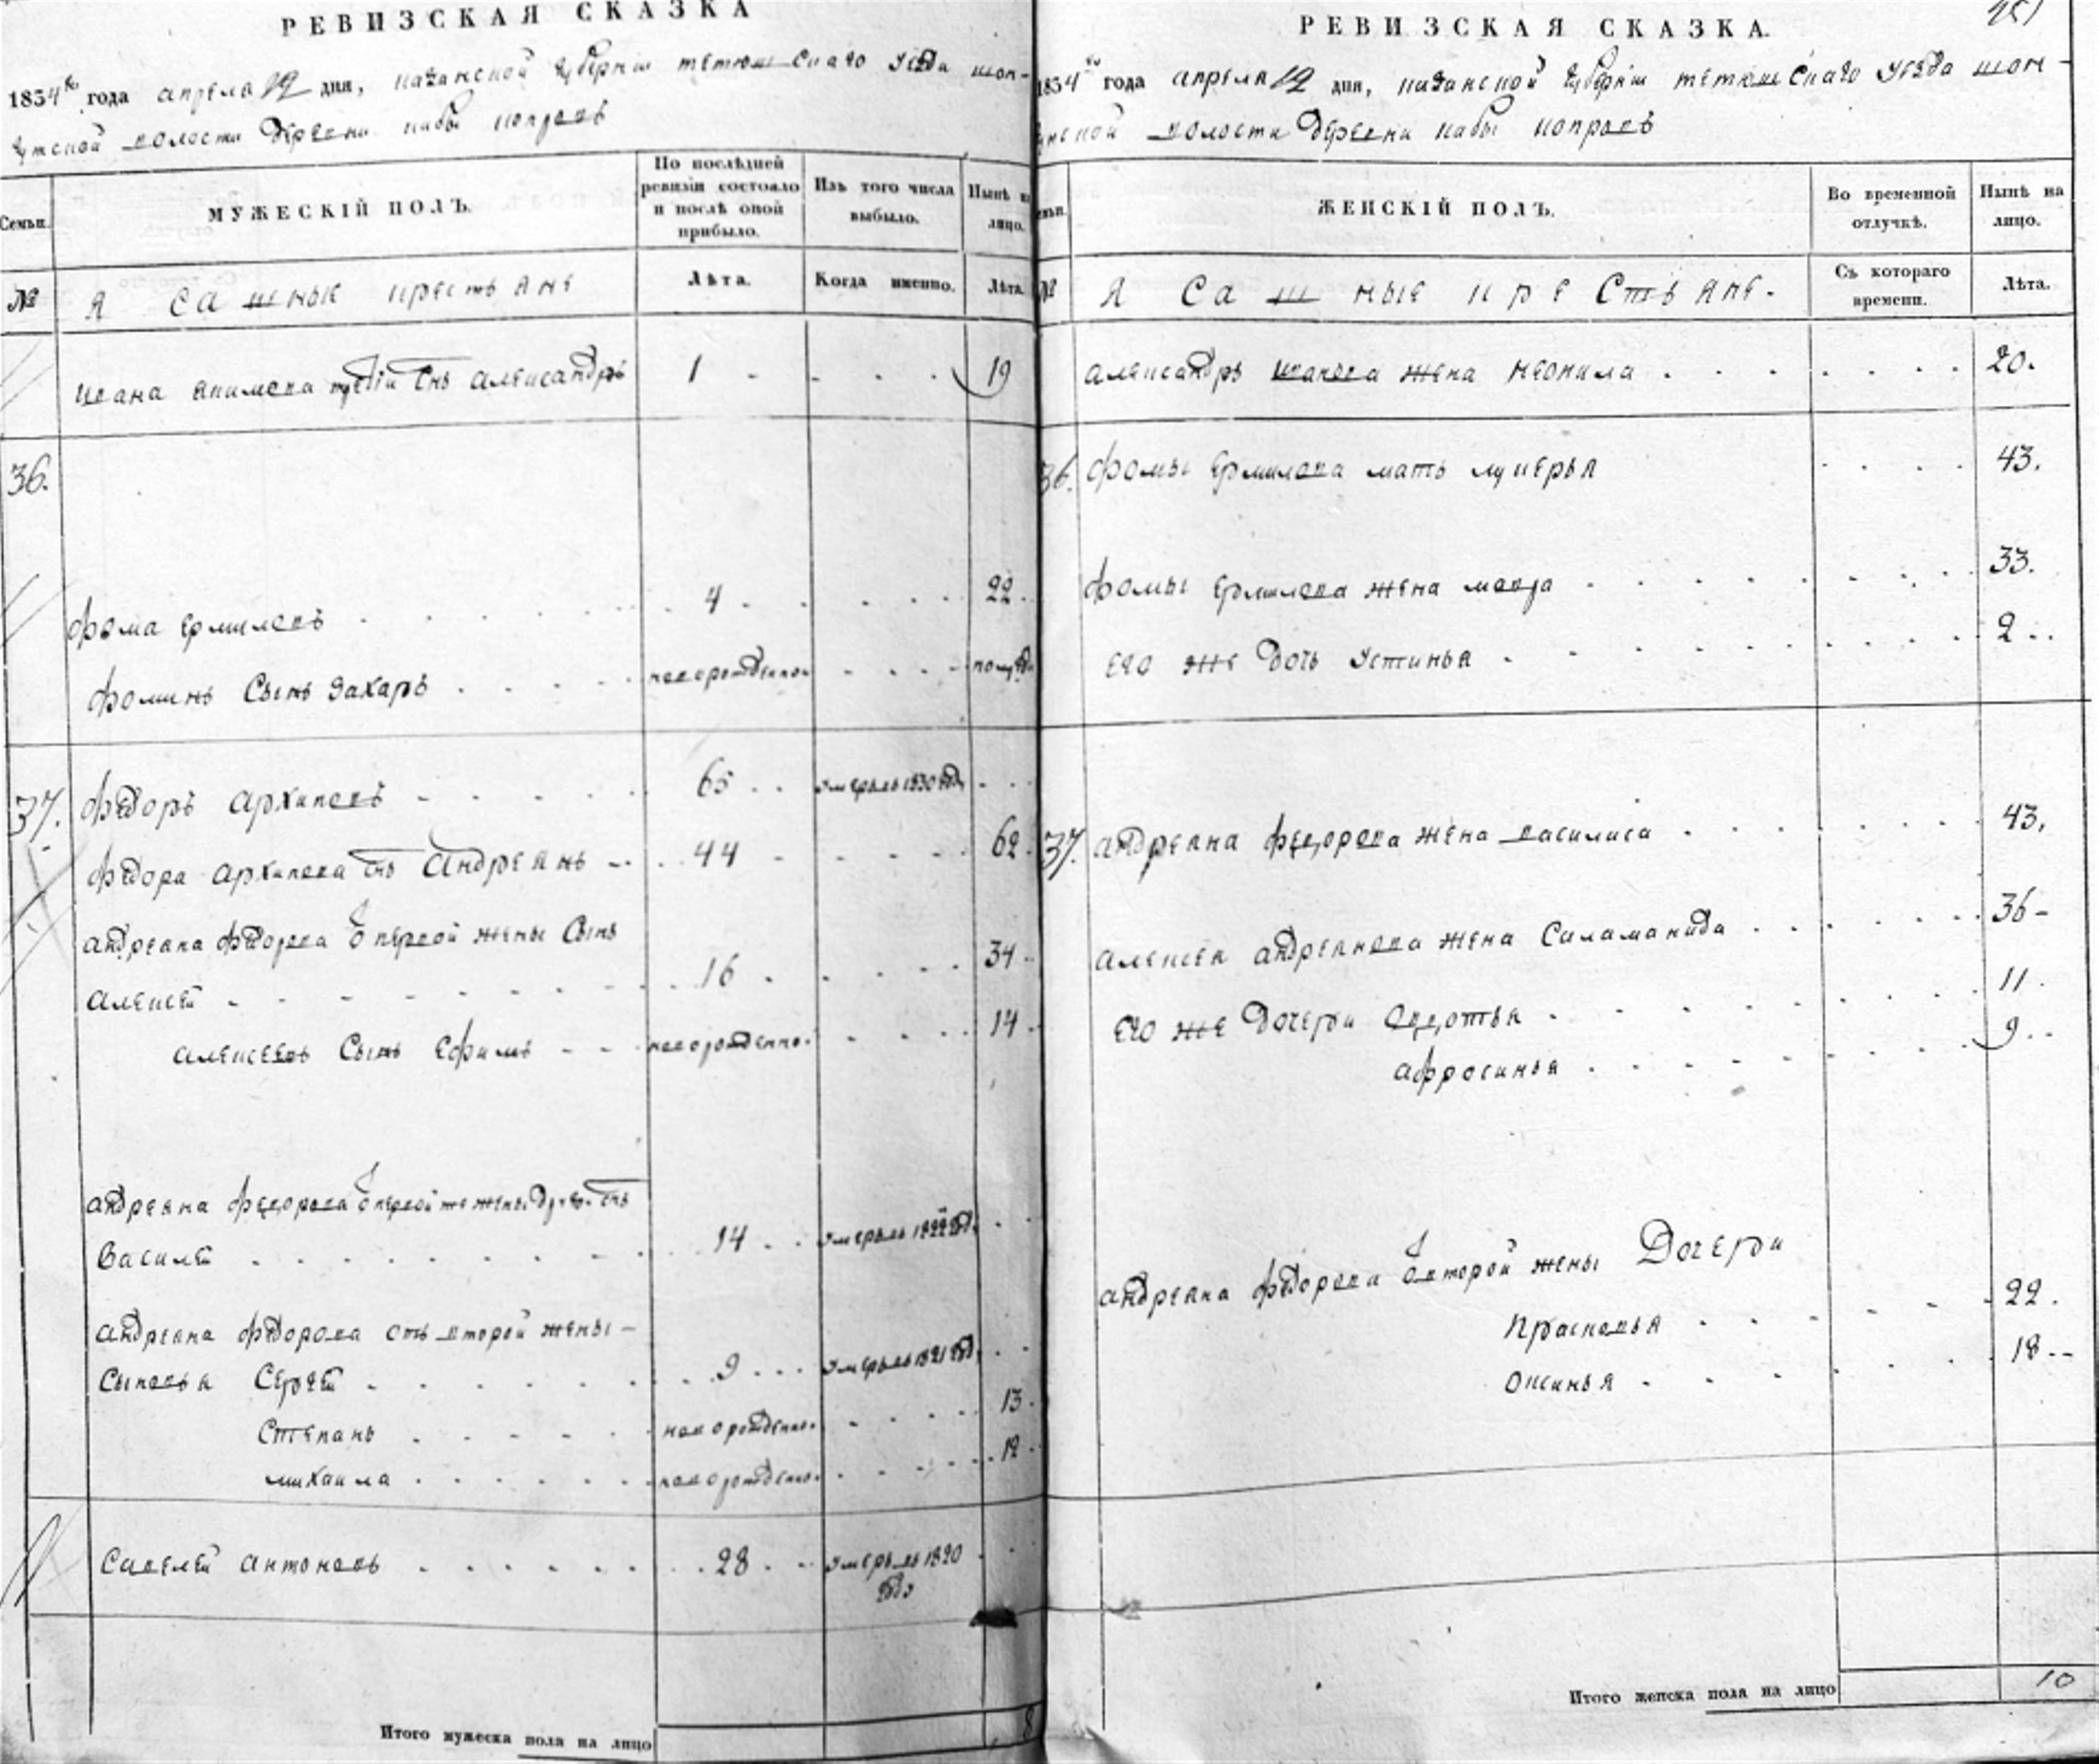 РЕВИЗСКАЯ СКАЗКА
1834го года апреля 12 дня, казанской губернии тетюшскаго уезда шон-
гутской волости деревни кибы копрось
Семьи.
МУЖЕСКІЙ ПОЛЪ.
По послѣдней ревизіи состояло и послѣ оной прибыло.
Изъ того числа выбыло.
Нынѣ на лицо.
№
Ясашные крестьяне
Лѣта.
Когда именно.
Лѣта.
ивана якимова третiй снъ александръ 1 19
36.
фома ермиловъ 4 22
фоминъ сынъ захаръ новорожденно полгода
37. федоръ архиповъ 65 умеръ въ 1830 году
федора архипова снъ андреянъ 44 62
андреяна федорова от первой жены сынъ
алексей 16 34
алексеевъ сынъ ефимъ новорожденно 14
андреяна федорова от первой же жены снъ
василей 14 умеръ въ году
андреяна федорова отъ второй жены
сыновья сергей 9 умеръ въ 1821 году
степанъ новорожденно 13
михаила новорожденно 12
савелей антоновъ 28 умеръ въ 1820
года
Итого мужеска пола на лицо 8
РЕВИЗСКАЯ СКАЗКА.
1834го года апреля 12 дня, казанской губернии тетюшскаго уезда шон-
гутской волости деревни кибы копрось
Семьи.
ЖЕНСКІЙ ПОЛЪ.
Во временной отлучкѣ.
Нынѣ на лицо.
№
Ясашные крестьяне.
Съ котораго времени.
Лѣта.
александръ иванова жена неонила 20.
36. фомы ермилова мать лукерья 43.
фомы ермилова жена мавра 33.
его же дочь устинья 2
37. андреяна федорова жена василиса 43,
алексея андреянова жена саламанида 36
его же дочери авдотья 11
афросинья 9
андреяна федорова от второй жены дочери
прасковья 22.
оксинья 18
Итого женска пола на лицо 10